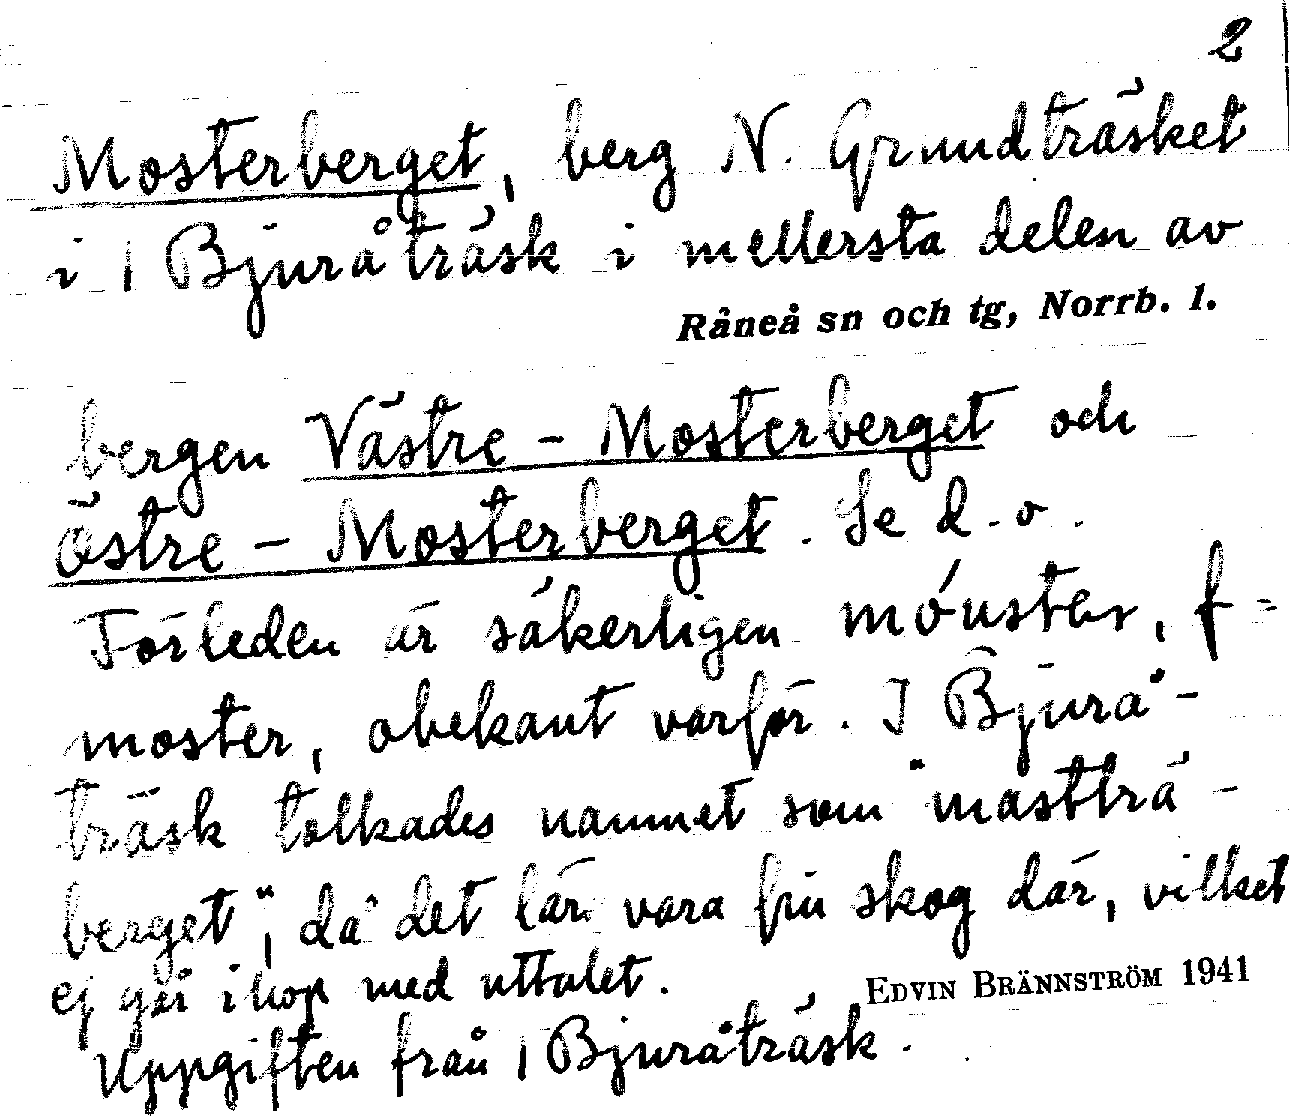 2
Mosterberget, berg N. Grundträsket
i 1 Bjuråträsk i mellersta delen av
Råneå sn och tg, Norrb. l.
bergen Västre-Mosterberget och
Östre-Mosterberget. Se d. o.
Förleden är säkerligen móuster, f =
moster, obekant varför. I Bjurå-
träsk tolkades namnet som "mastträ-
berget", då det lär vara fin skog där, vilket
ej går ihop med uttalet.
EDVIN BRÄNNSTRÖM 1941
Uppgiften från 1 Bjuråträsk.